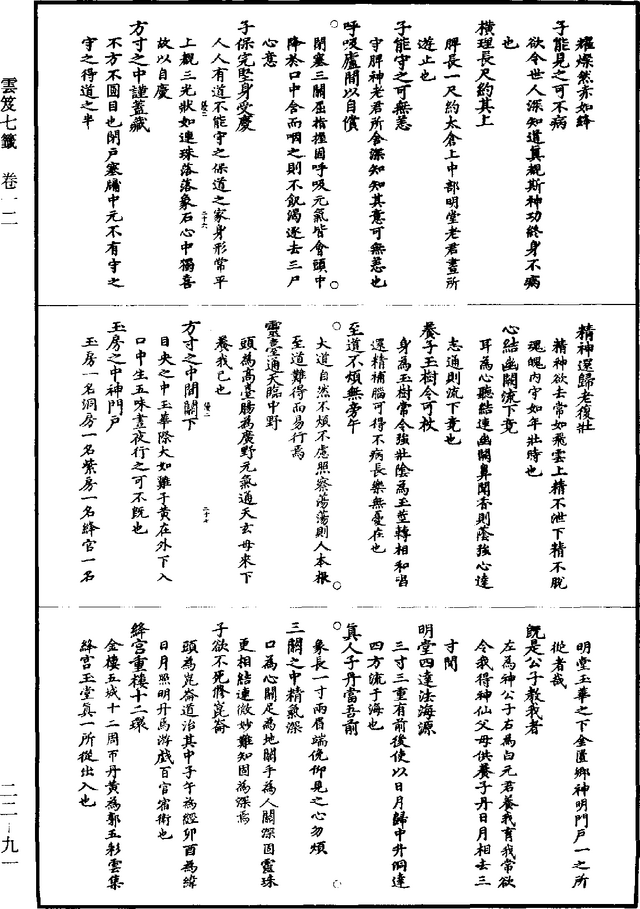 雲笈七籤 卷一二
二二-九一
耀燦然赤如絳
子能見之可不病
欲令世人深知道真觀斯神功終身不病
也
橫理長尺約其上
脾長一尺約太倉上中部明堂老君晝所
遊止也
子能守之可無恙
守脾神老君所舍深知知其意可無恙也
呼吸廬間以自償
閉塞三關屈指握固呼吸元氣皆會頭中
降於口中含而咽之則不飢渴逐去三尸
心意
子保完堅身受慶
人人有道不能守之保道之家身形常平
上觀三光狀如連珠落落象石心中獨喜
故以自慶
方寸之中謹蓋藏
不方不圓目也閉戶塞牖中元不有守之
守之得道之半
精神還歸老復壯
精神欲去常如飛雲上精不泄下精不脫
魂魄內守如年壯時也
心結幽闕流下竟
耳為心聽結連幽闕鼻聞香則蔭強心達
志通則流下竟也
養子玉樹令可杖
身為玉樹常令強壯陰為玉莖轉相和唱
還精補腦可得不病長樂無憂在也
至道不煩無旁午
大道自然不煩不慮照察蕩蕩則人本根
至道難得而易行焉
靈臺通天臨中野
頭為高臺腸為廣野元氣通天玄母來下
養我已也
方寸之中間關下
目央之中玉華際大如雞子黃在外下入
口中生五味晝夜行之可不既也
玉房之中神門戶
玉房一名洞房一名紫房一名絳宮一名
明堂玉華之下金匱鄉神明門戶一之所
從者哉
既是公子教我者
左為神公子右為白元君養我育我常欲
令我得神仙父母供養子丹日月相去三
寸間
明堂四達法海源
三寸三重有前後使以日月歸中升洞達
四方流于海也
真人子丹當吾前
象長一寸兩眉端俛仰見之心勿煩
三關之中精氣深
口為心關足為地關手為人關深固靈珠
更相結連微妙難知固為深焉
子欲不死修崑崙
頭為崑崙道治其中子午為經卯酉為緯
日月照明丹馬游戲百官宿衛也
絳宮重樓十二環
金樓五城十二周帀丹黃為郭五彩雲集
絳宮玉堂真一所從出入也